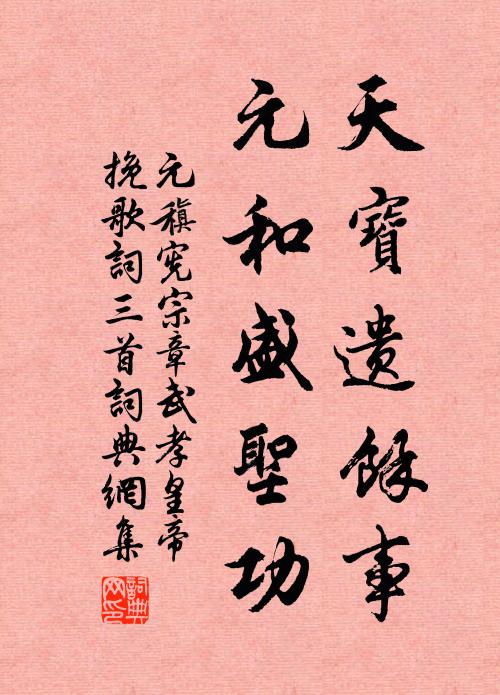 天寶遺餘事
元和盛聖功
元稹宪宗章武孝皇帝
挽歌詞三首詞典網集
詞典
网印